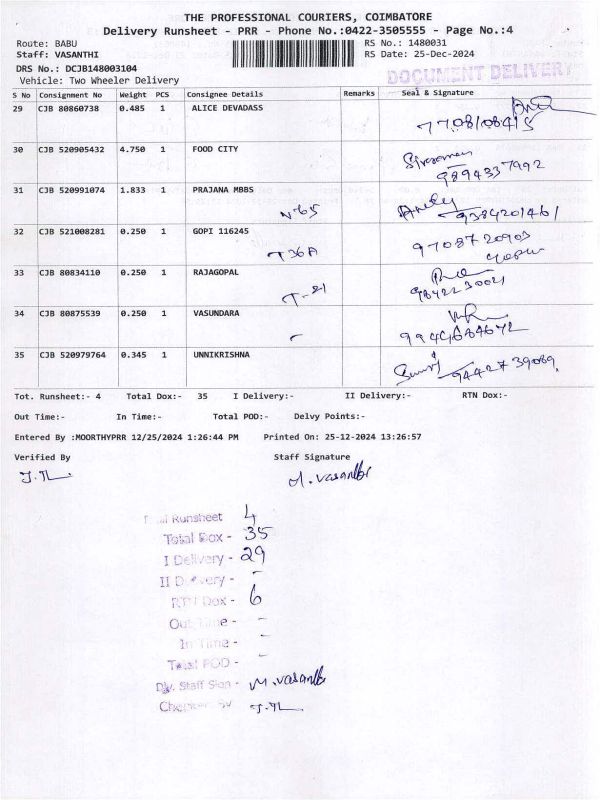 THE PROFESSIONAL COURIERS, COIMBATORE
Delivery Runsheet - PRR - Phone No.:0422-3505555 - Page No.:4
Route: BABU RS No.: 1480031
Staff: VASANTHI RS Date: 25-Dec-2024
DRS No.: DCJB148003104
DOCUMENT DELIVERY
Vehicle: Two Wheeler Delivery
S No Consignment No Weight PCS Consignee Details Remarks Seal & Signature
29 CJB 80860738 0.485 1 ALICE DEVADASS
7708108415
30 CJB 520905432 4.750 1 FOOD CITY
9894337992
31 CJB 520991074 1.833 1 PRAJANA MBBS
N-65 9384201461
32 CJB 521008281 0.250 1 GOPI 116245
T36A 9708720903
33 CJB 80834110 0.250 1 RAJAGOPAL
T-21 9842230021
34 CJB 80875539 0.250 1 VASUNDARA
- 9944684672
35 CJB 520979764 0.345 1 UNNIKRISHNA
9442739089
Tot. Runsheet:- 4 Total Dox:- 35 I Delivery:- II Delivery:- RTN Dox:-
Out Time:- In Time:- Total POD:- Delvy Points:-
Entered By :MOORTHYPRR 12/25/2024 1:26:44 PM Printed On: 25-12-2024 13:26:57
Verified By Staff Signature
M. Vasanthi
Total Runsheet 4
Total Dox - 35
I Delivery - 29
II Delivery - -
RTN Dox - 6
Out Time - -
In Time - -
Total POD - -
Dly. Staff Sign - M. Vasanthi